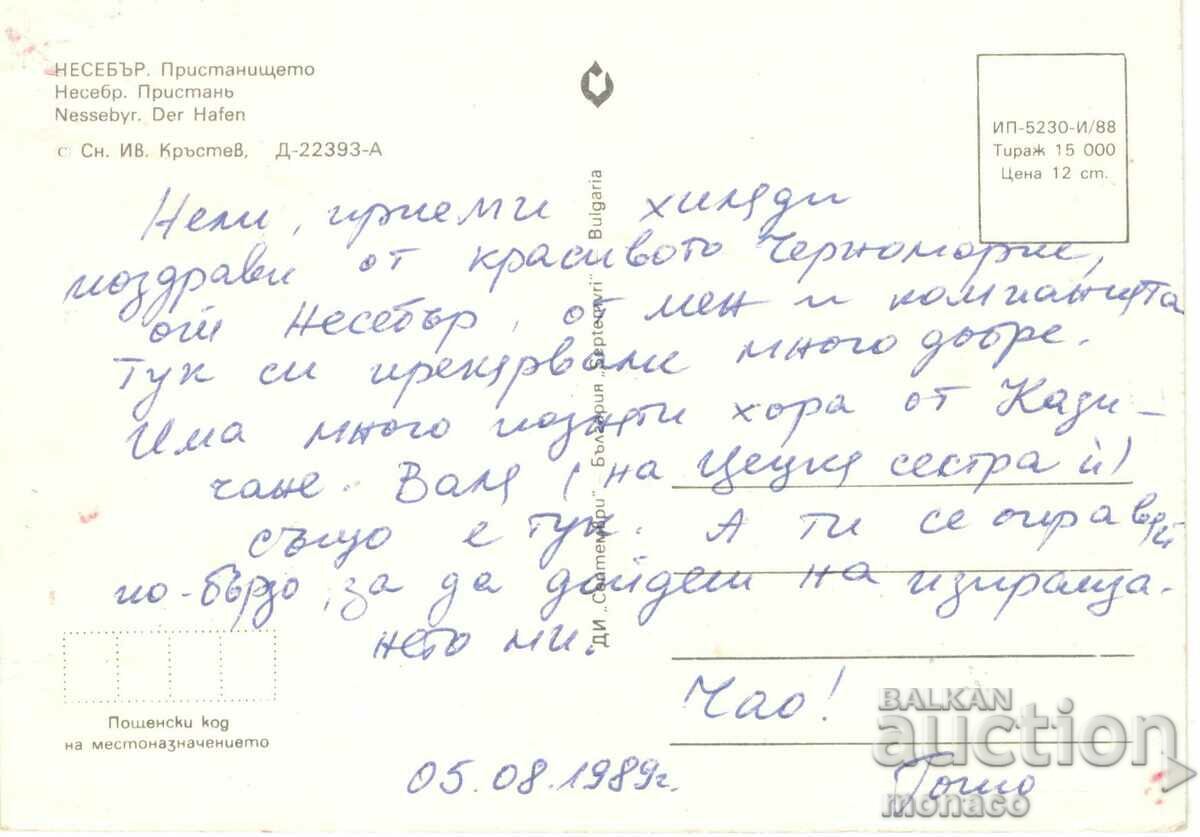 НЕСЕБЪР. Пристанището
Несебр. Пристань
Nessebyr. Der Hafen
с Сн. Ив. Кръстев, Д-22393-А
ИП-5230-И/88
Тираж 15 000
Цена 12 ст.
ДИ „Септември" - България „Septemvri" Bulgaria
Нели, приеми хиляди
поздрави от красивото Черноморие,
от Несебър, от мен и компанията
Тук си прекарвали много добре.
Има много познати хора от Кази-
чане. Валя (на Цецка сестра ѝ)
също е тук. А ти се оправяй
по-бързо, за да дойдеш на изпраща-
нето ми.
Чао!
05.08.1989г.
Гошо
Пощенски код
на местоназначението
BALKAN
auction
monaco